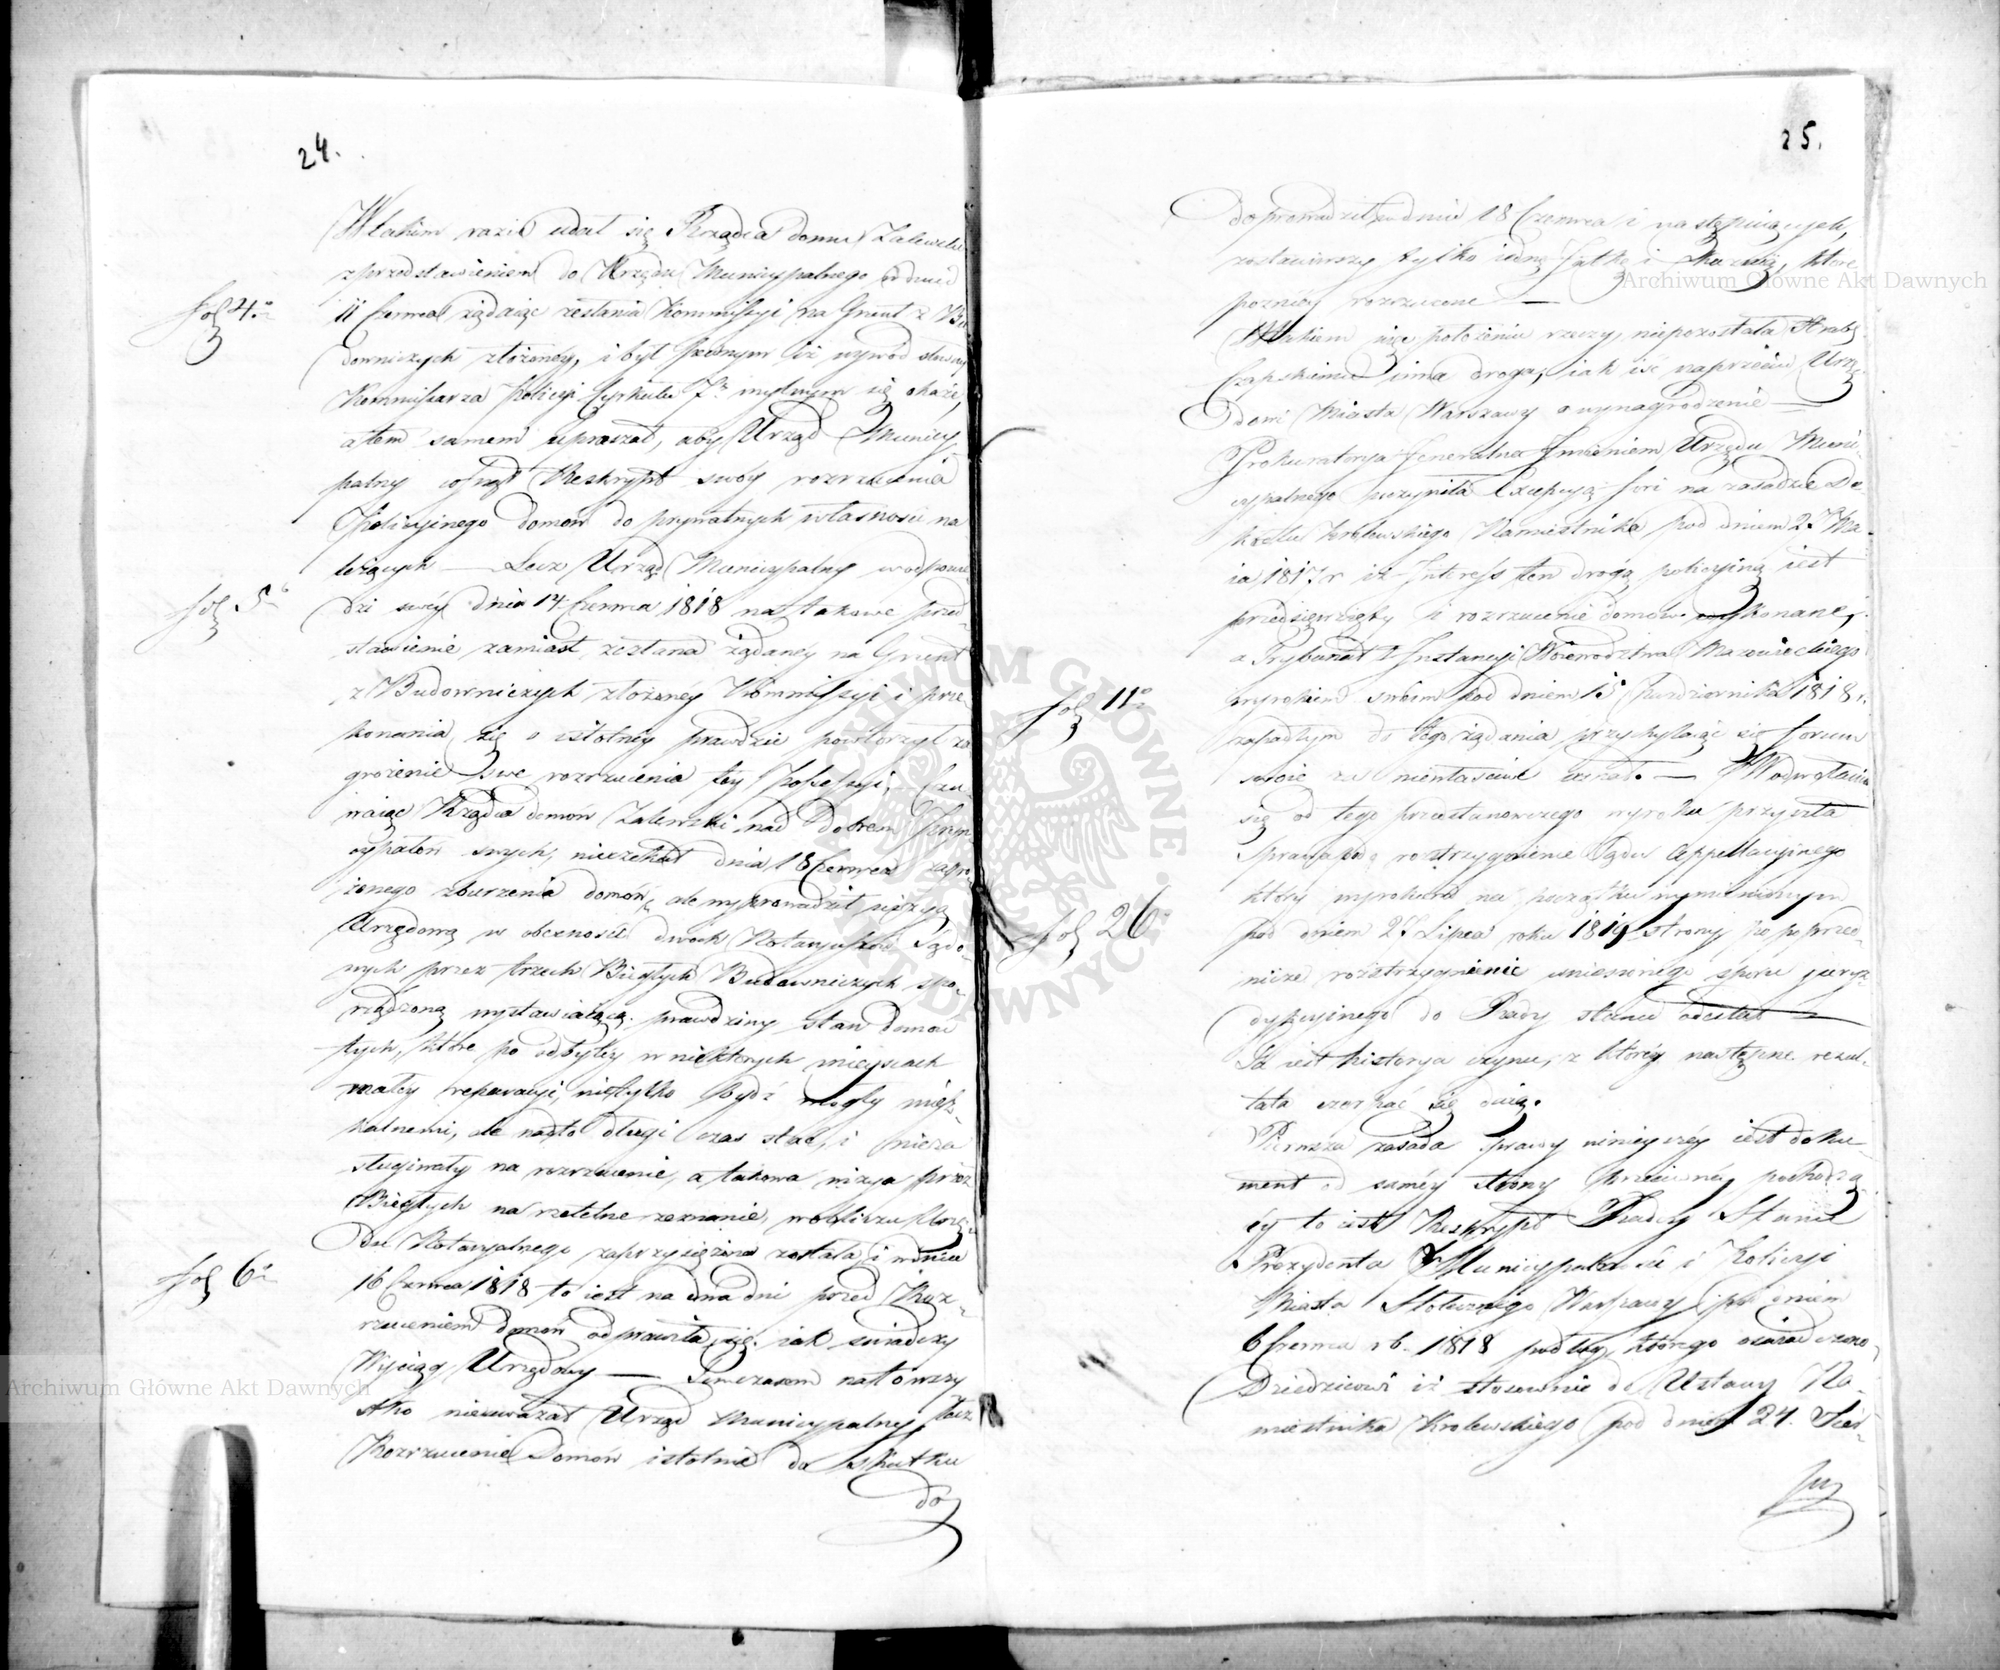 24.
W takim razie udał się Rządca domu Zalewski
z przedstawieniem do Urzędu Municypalnego w dniu
fol 4to
11 Czerwca żądaiąc zesłania Kommissyi na Grunt z Bu-
downiczych złożoney, i był pewnym iż wywód słowny
Kommissarza Policyi Cyrkułu 7go mylnym się okaże,
a tem samem upraszał, aby Urząd Municy-
palny cofnął Reskrypt swóy rozrzucenia
Policyinego domów do prywatnych własności na
leżących — Lecz Urząd Municypalny w odpowie
fol 5to
dzi swéy dnia 14 Czerwca 1818 na takowe przed-
stawienie, zamiast zesłania żądaney na Grunt
z Budowniczych złożoney Kommissyi i prze
konania się o istotney prawdzie powtorzył za
grożenie swe rozrzucenia tey Possessyi, Czu-
waiąc Rządca domów Zalewski nad Dobrem Pryn
cypałów swych, nieczekał dnia 18 Czerwca zagro
żonego zburzenia domów, ale wyprowadził wizyą
Urzędową w obecności dwoch Notaryuszów Sądo-
wych przez trzech Biegłych Budowniczych spo-
rządzoną wystawiaiącą prawdziwy stan domów
tych, które po odbytey w niektorych mieyscach
małey reparacyi nietylko bydź mogły miesz-
kalnemi, ale nadto długi czas stać, i nieza
sługiwały na rozrzucenie, a takowa wizya przez
Biegłych na rzetelne zeznanie, w obliczu Urzę-
du Notaryalnego zaprzysiężona została i w dniu
fol 6to
16 Czerwca 1818 to iest na dwa dni przed Roz-
rzuceniem domów odprawiła się iak świadczy
Wyciąg Urzędowy — Tymczasem na to wszy
stko nieuważał Urząd Municypalny, lecz
Rozrzucenie Domów istotnie do skutku
do
25.
doprowadził w dniu 18 Czerwca i następuiących,
zostawiwszy tylko iedną Jatkę i, które
pozniéy rozrzucone —
W takiem więc położeniu rzeczy, niepozostała Hrabi
Czapskiemu inna droga, iak iść naprzeciw Urzę-
dowi Miasta Warszawy o wynagrodzenie —
Prokuratorya Generalna Imieniem Urzędu Muni-
cypalnego uczyniła Excepcyą fori na zasadzie De-
kretu Królewskiego Namiestnika pod dniem 2. Ma-
ia 1817 r iż Interess ten drogą policyiną iest
przedsięwzięty i rozrzucenie domów wykonane,
a Trybunał I Instancyi Województwa Mazowieckiego
fol 11o
wyrokiem swoim pod dniem 15 Października 1818 r.
zapadłym do tego żądania przychylaiąc się forum
swoie za niewłaściwe uznał. — W odwołaniu
się od tego przedstanowczego wyroku przyszła
Sprawa pod rozstrzygnienie Sądu Appellacyinego
który wyrokiem na początku wymienionym
fol 26
pod dniem 28 Lipca roku 1819 strony po poprzed-
nicze rozstrzygnienie wniesionego sporu juryz-
dykcyinego do Rady stanu odesłał —
Ta iest historya czynu, z któréy następne rezul-
tata czerpać się daią.
Pierwsza zasada sprawy ninieyszéy iest doku-
ment od saméy strony przeciwnéy pochodzą
cy to iest Reskrypt Rady Stanu
Prezydenta Municypalności i Policyi
Miasta Stołecznego Warszawy pod dniem
6 Czerwca r b. 1818 podług którego oświadczono
Dziedzicowi iż stosownie do Ustawy Na-
miestnika Królewskiego pod dniem 24. Sier-